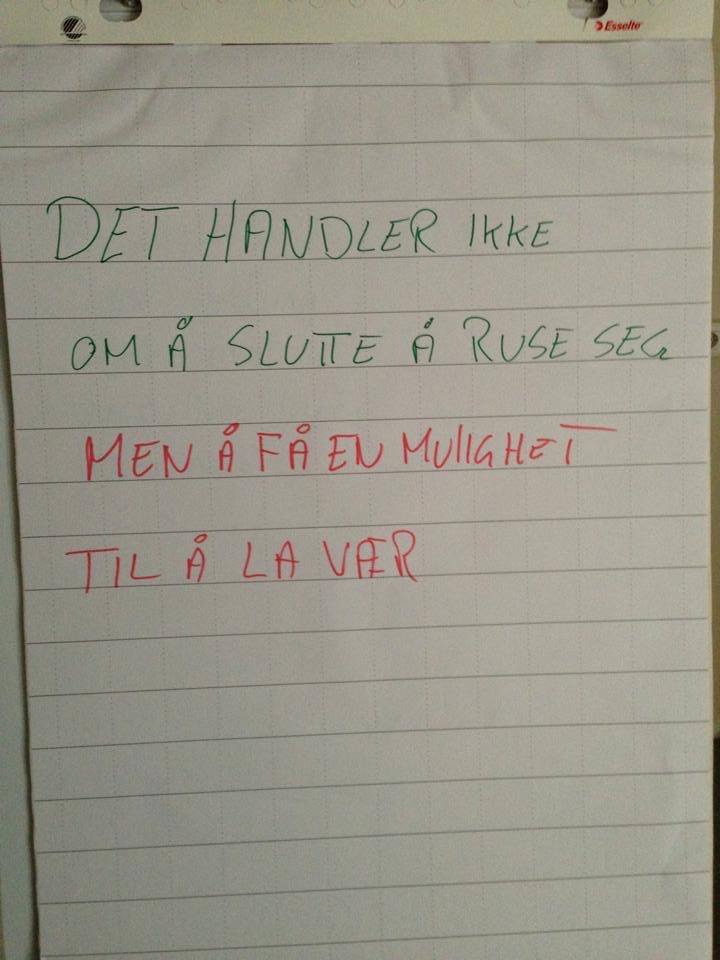 Esselte
DET HANDLER IKKE
OM Å SLUTTE Å RUSE SEG
MEN Å FÅ EN MULIGHET
TIL Å LA VÆR